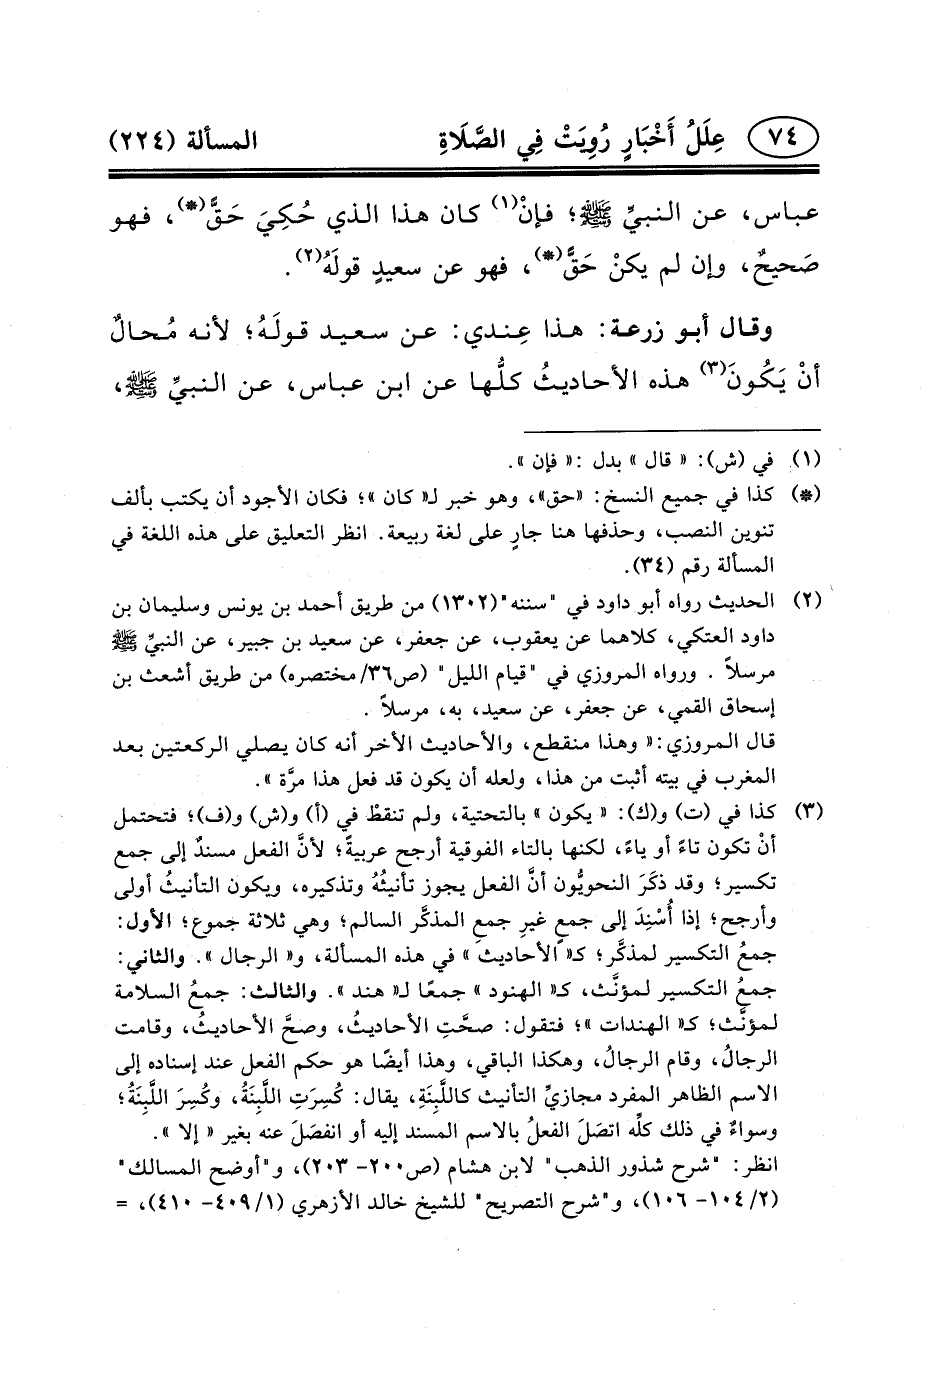 ٧٤ عِلَلُ أَخْبَارٍ رُوِيَتْ فِي الصَّلَاةِ المسألة (٢٢٤)
عباس، عن النبيِّ ﷺ؛ فإنْ(١) كان هذا الذي حُكِيَ حَقَّ(*)، فهو
صَحيحٌ، وإن لم يكنْ حَقَّ(*)، فهو عن سعيدٍ قولَهُ(٢).
وقال أبو زرعة: هذا عِندي: عن سعيد قولَهُ؛ لأنه مُحالٌ
أنْ يَكُونَ(٣) هذه الأحاديثُ كلُّها عن ابن عباس، عن النبيِّ ﷺ،
(١) في (ش): « قال » بدل :« فإن ».
(*) كذا في جميع النسخ: «حق»، وهو خبر لـ« كان »؛ فكان الأجود أن يكتب بألف
تنوين النصب، وحذفها هنا جارٍ على لغة ربيعة. انظر التعليق على هذه اللغة في
المسألة رقم (٣٤).
(٢) الحديث رواه أبو داود في "سننه"(١٣٠٢) من طريق أحمد بن يونس وسليمان بن
داود العتكي، كلاهما عن يعقوب، عن جعفر، عن سعيد بن جبير، عن النبيِّ ﷺ
مرسلاً . ورواه المروزي في "قيام الليل" (ص٣٦/مختصره) من طريق أشعث بن
إسحاق القمي، عن جعفر، عن سعيد، به، مرسلاً .
قال المروزي:« وهذا منقطع، والأحاديث الأخر أنه كان يصلي الركعتين بعد
المغرب في بيته أثبت من هذا، ولعله أن يكون قد فعل هذا مرَّة ».
(٣) كذا في (ت) و(ك): « يكون » بالتحتية، ولم تنقطْ في (أ) و(ش) و(ف)؛ فتحتمل
أنْ تكون تاءً أو ياءً، لكنها بالتاء الفوقية أرجح عربيةً؛ لأنَّ الفعل مسندٌ إلى جمع
تكسير؛ وقد ذكَرَ النحويُّون أنَّ الفعل يجوز تأنيثُهُ وتذكيره، ويكون التأنيثُ أولى
وأرجح؛ إذا أُسْنِدَ إلى جمعٍ غيرِ جمعِ المذكَّر السالم؛ وهي ثلاثة جموع؛ الأول:
جمعُ التكسير لمذكَّر؛ كـ« الأحاديث » في هذه المسألة، و« الرجال ». والثاني:
جمعُ التكسير لمؤنَّث، كـ« الهنود » جمعًا لـ« هند ». والثالث: جمعُ السلامة
لمؤنَّث؛ كـ« الهندات »؛ فتقول: صحَّتِ الأحاديثُ، وصحَّ الأحاديثُ، وقامت
الرجالُ، وقام الرجالُ، وهكذا الباقي، وهذا أيضًا هو حكم الفعل عند إسناده إلى
الاسم الظاهر المفرد مجازيِّ التأنيث كاللَّبِنَةِ، يقال: كُسِرَتِ اللَّبِنَةُ، وكُسِرَ اللَّبِنَةُ؛
وسواءٌ في ذلك كلِّه اتصَلَ الفعلُ بالاسم المسند إليه أو انفصَلَ عنه بغير « إلا ».
انظر: "شرح شذور الذهب" لابن هشام (ص٢٠٠- ٢٠٣)، و"أوضح المسالك"
(٢/ ١٠٤- ١٠٦)، و"شرح التصريح" للشيخ خالد الأزهري (١/ ٤٠٩- ٤١٠)، =